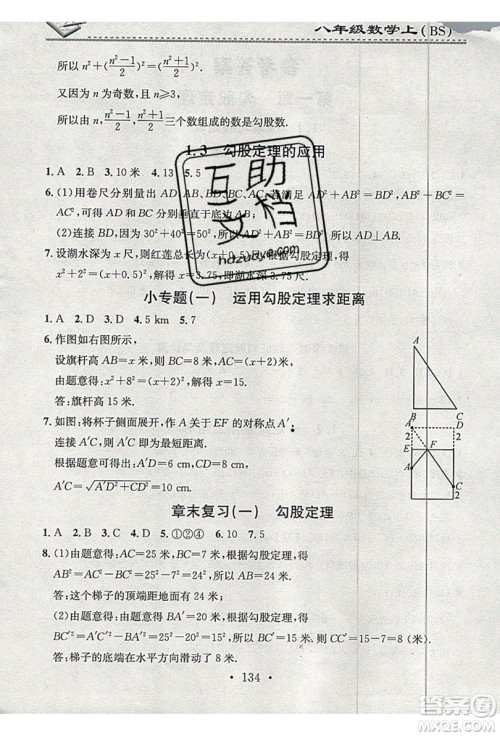 八年级数学上(BS)
所以n²+(n²-1/2)²=(n²+1/2)².
又因为n为奇数，且n²-1/2，n²+1/2为正整数，
所以n，n²-1/2，n²+1/2三个数组成的数是勾股数.
1.3 勾股定理的应用
1.A 2.B 3.10米 4.13 5.5
6.(1)用卷尺分别量出AD，AB，BD，BC，AC，若满足AD²+AB²=BD²，AB²+BC²=
AC²，则可说明AD，BC分别垂直于底边AB；
(2)连接BD，因为30²+40²=50²，所以AD²+AB²=BD².所以AD⊥AB.
7.设湖水深x尺，则红莲总长是(x+0.5)尺.根据勾股定理，得
x²+2²=(x+0.5)².解得x=3.75，即湖水深3.75尺.
小专题(一) 运用勾股定理求距离
1.A 2.D 3.A 4.5 km 5.7
6.作图如右图所示，
设旗杆高AB=x米，则BC=5米，AC=(x+1)米.由勾股定理，
得x²+5²=(x+1)².解得x=12.
答：旗杆高12米.
7.如图：将杯子侧面展开，作A关于EF的对称点A′，
连接A′C，则A′C即为最短距离.
根据题意，得A′D=6 cm，CD=8 cm，
A′C=√A′D²+CD²=10(cm).
章末复习(一) 勾股定理
1.A 2.B 3.D 4.D 5.①②④ 6.10 7.5
8.(1)由题意得：AC=25米，BC=7米，根据勾股定理，得
AB²=AC²-BC²=25²-7²=24².所以AB=24米.
答：这个梯子的顶端距地面有24米.
(2)由题意得：BA′=20米，根据勾股定理，得
BC′²=A′C′²-BA′²=25²-20²=15².所以BC′=15米.则CC′=15-7=8(米).
答：梯子的底端在水平方向滑动了8米.
134
A
B
C
A′
D
2
2
E
F
A
C
2
互助文档
hdzuoye.com
答案圈
MXQE.COM